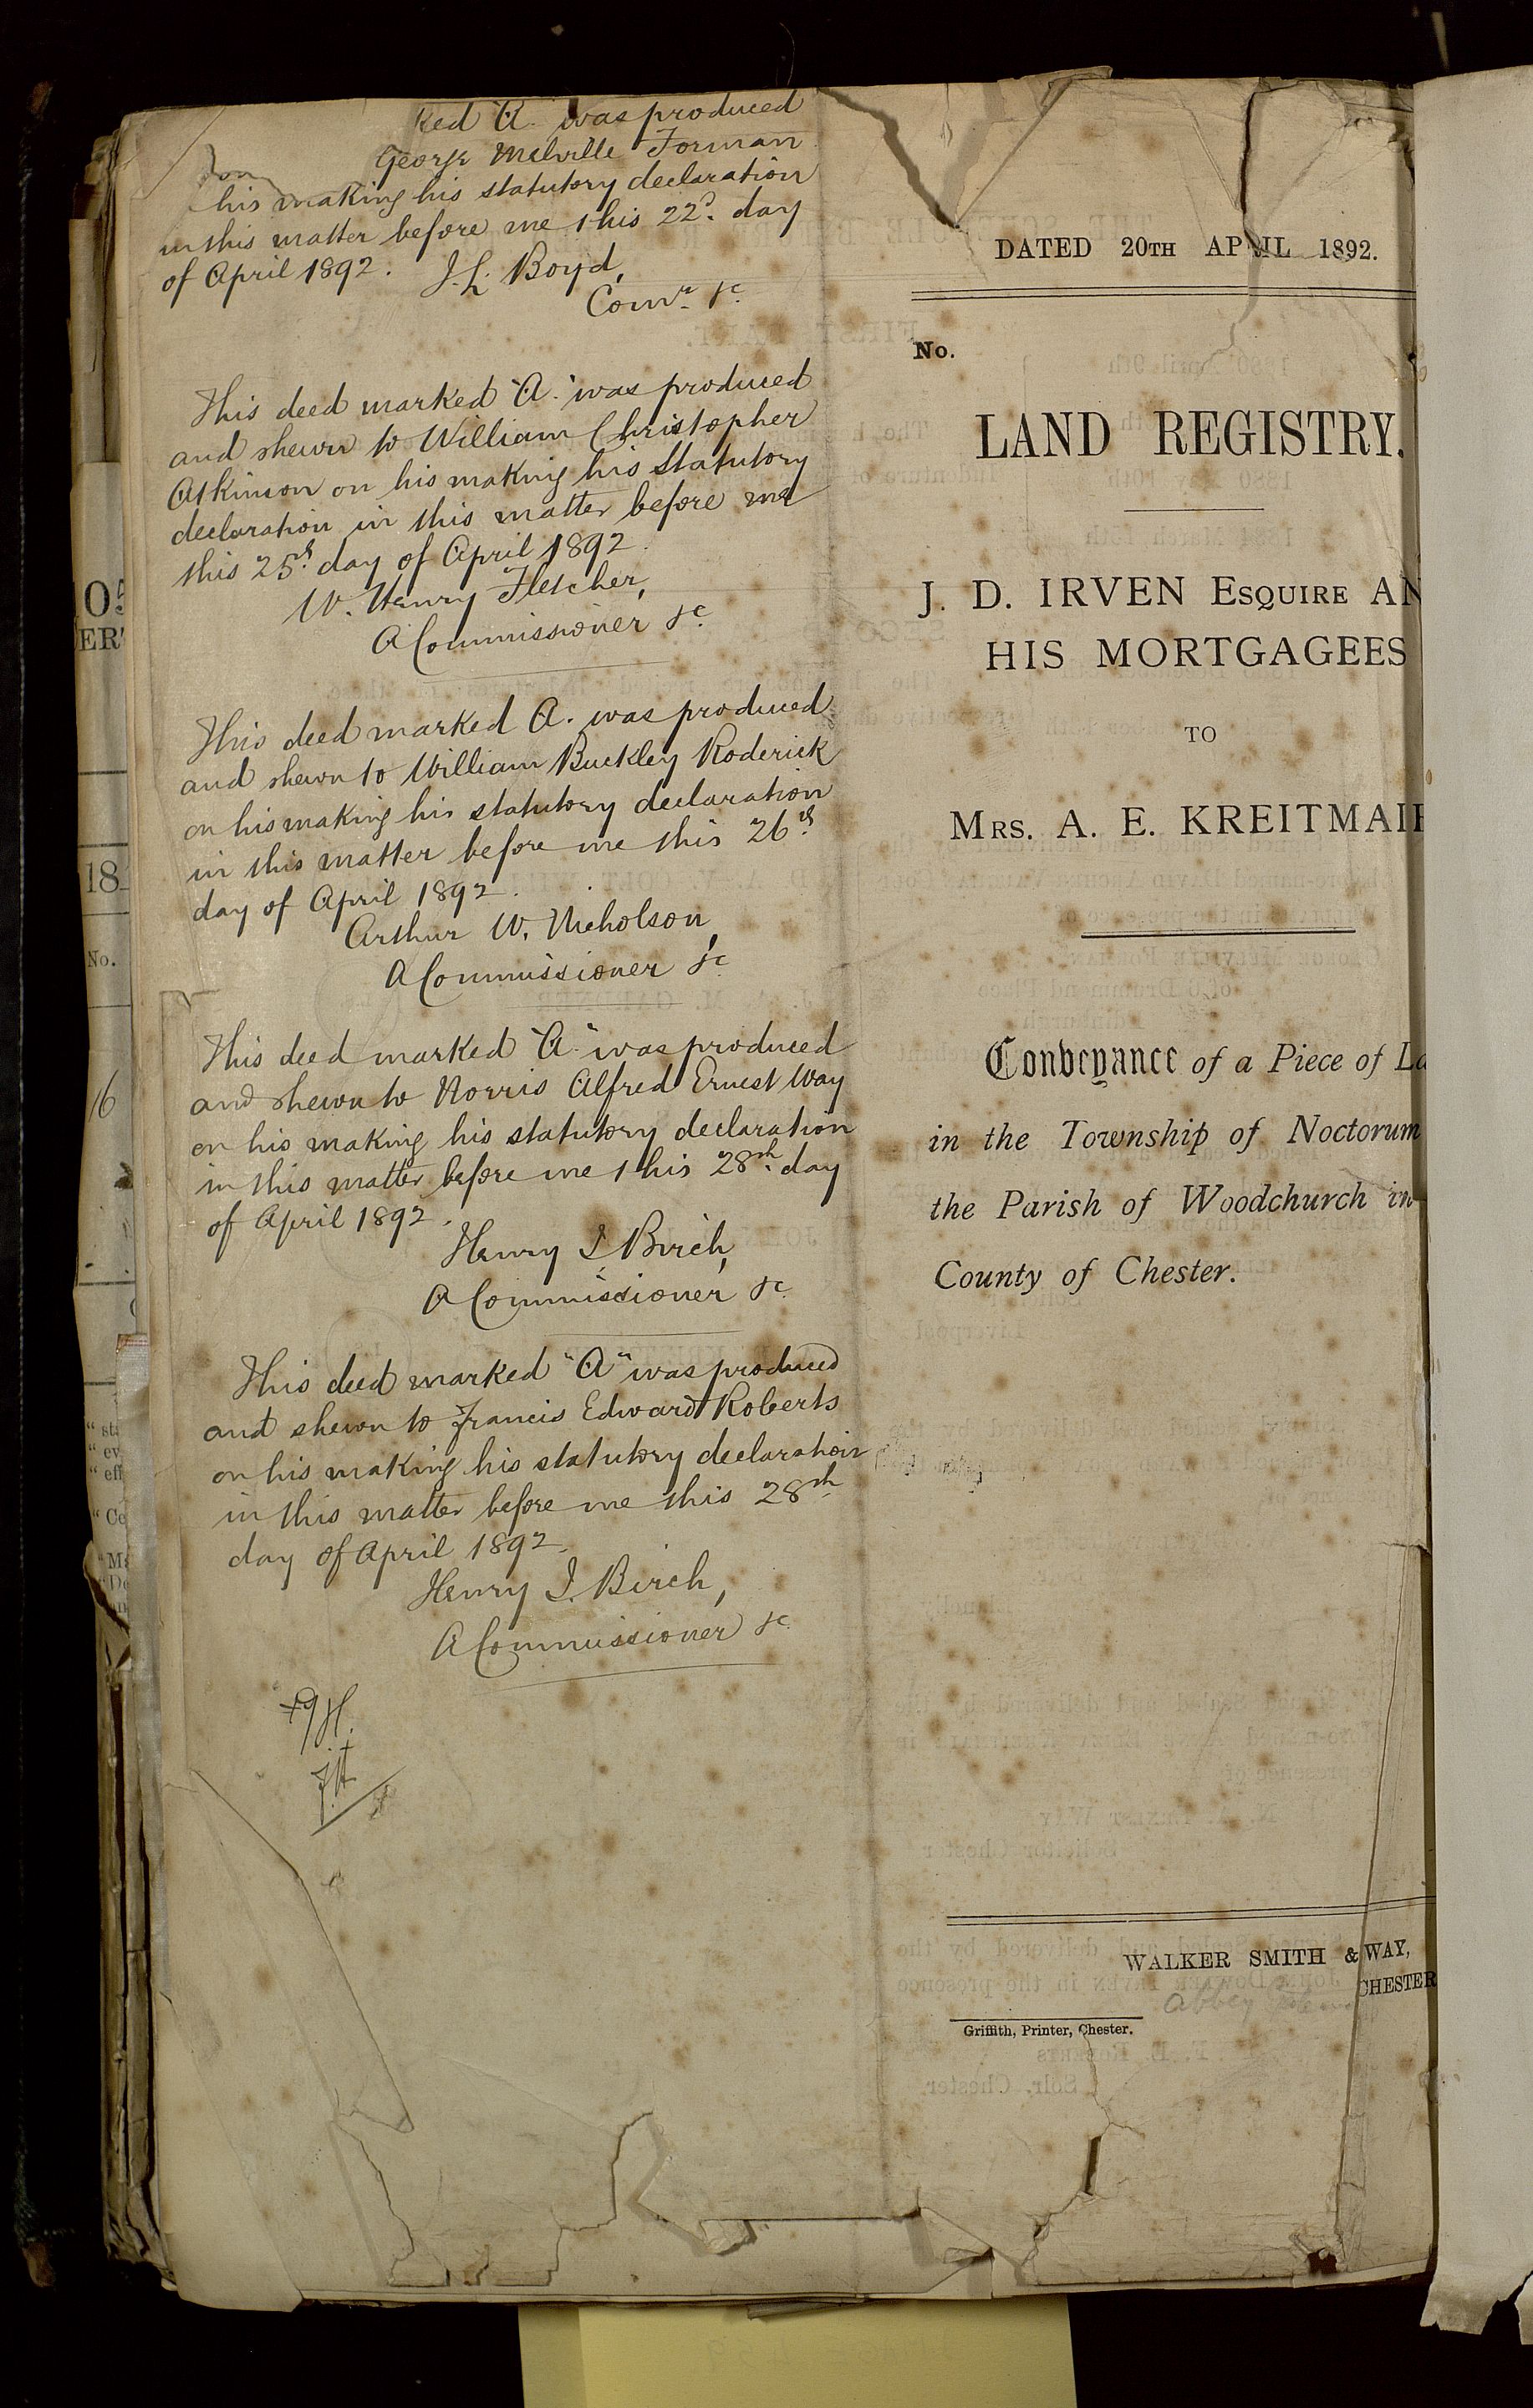 ked "A" was produced
George Melville Forman
on
his making his statutory declaration
in this matter before me this 22d. day
of April 1892.
J. L. Boyd,
Comr. &c.
This deed marked "A." was produced
and shewn to William Christopher
Atkinson on his making his statutory
declaration in this matter before me
this 25th day of April 1892.
W. Henry Fletcher,
A Commissioner &c.
This deed marked A. was produced
and shewn to William Buckley Roderick
on his making his statutory declaration
in this matter before me this 26th.
day of April 1892.
Arthur W. Nicholson,
A Commissioner &c.
This deed marked "A" was produced
and shewn to Norris Alfred Ernest Way
on his making his statutory declaration
in this matter before me this 28th. day
of April 1892.
Henry I. Birch,
A Commissioner &c.
This deed marked "A" was produced
and shewn to Francis Edward Roberts
on his making his statutory declaration
in this matter before me this 28th
day of April 1892.
Henry I. Birch,
A Commissioner &c.
DATED 20TH APRIL 1892.
No.
LAND REGISTRY.
J. D. IRVEN ESQUIRE AN
HIS MORTGAGEES
TO
MRS. A. E. KREITMAI
Conveyance of a Piece of La
in the Township of Noctorum
the Parish of Woodchurch in
County of Chester.
WALKER SMITH & WAY,
CHESTER
Abbey
Griffith, Printer, Chester.
18
No.
16